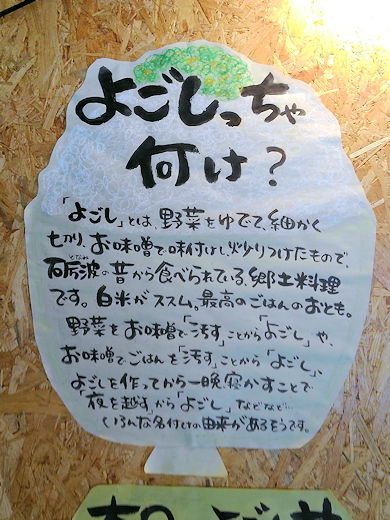 よごしっちゃ
何け?
「よごし」とは、野菜をゆでて、細かく
切り、お味噌で味付けし、炒りつけたもので、
となみ
砺波の昔から食べられている、郷土料理
です。白米がススム、最高のごはんのおとも。
野菜をお味噌で「汚す」ことから「よごし」や、
お味噌でごはんを「汚す」ことから「よごし」、
よごしを作ってから一晩寝かすことで
「夜を越す」から「よごし」などなど…
いろんな名付けの由来があるそうです。